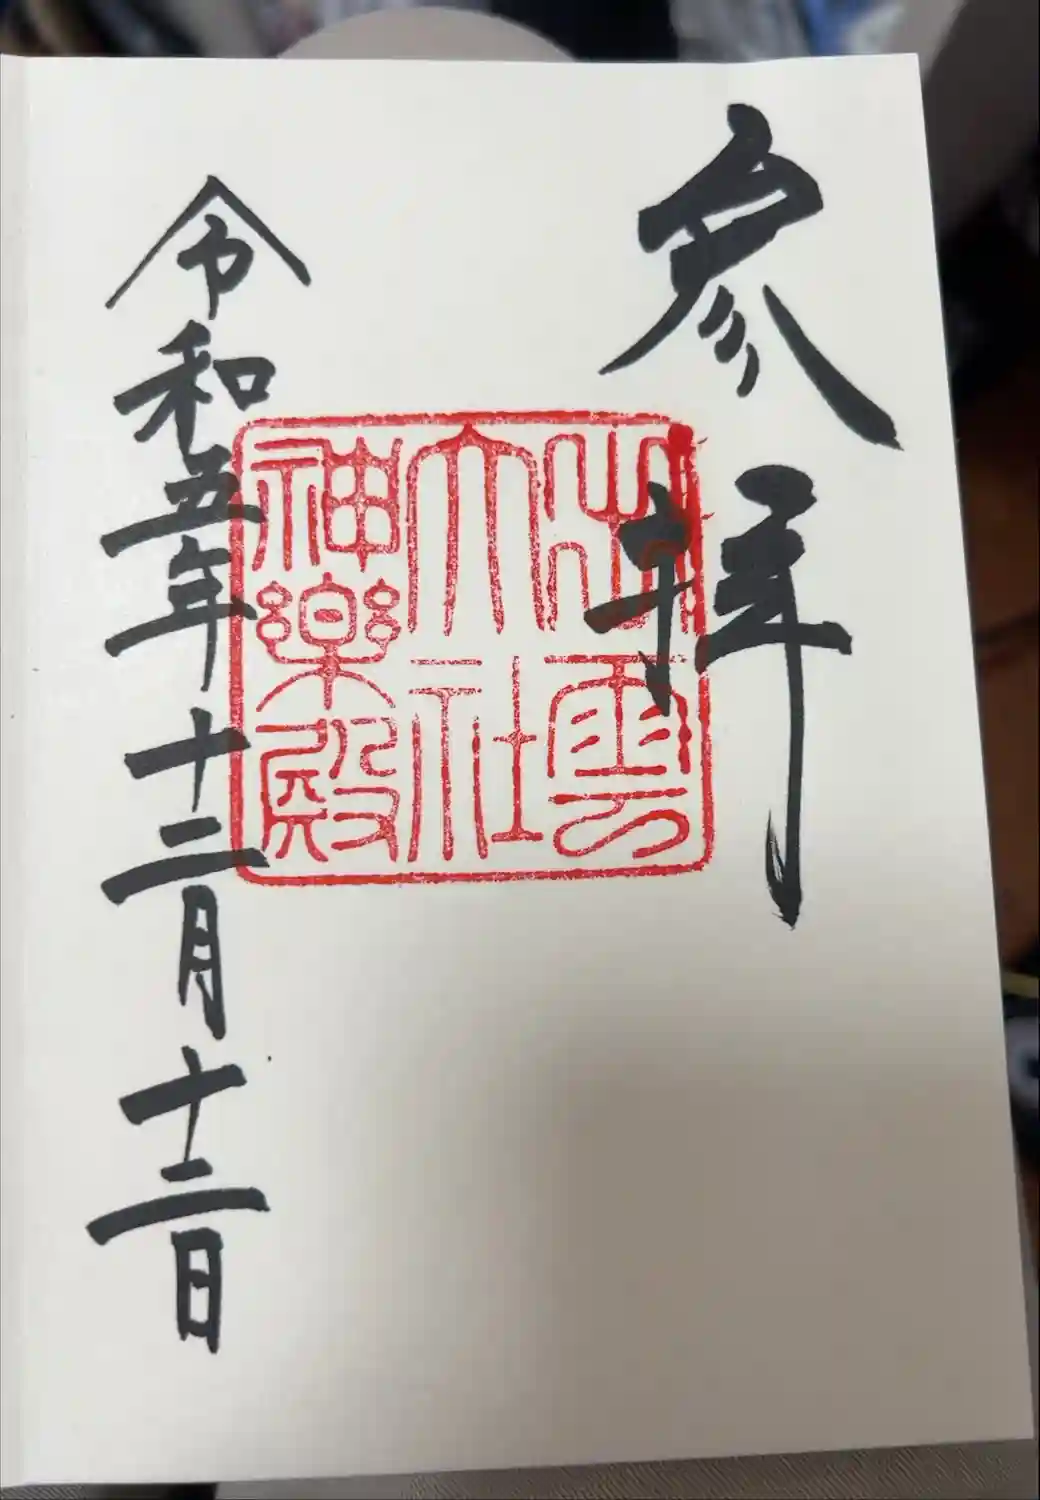 参拝
出雲
大社
神楽殿
令和五年十二月十二日